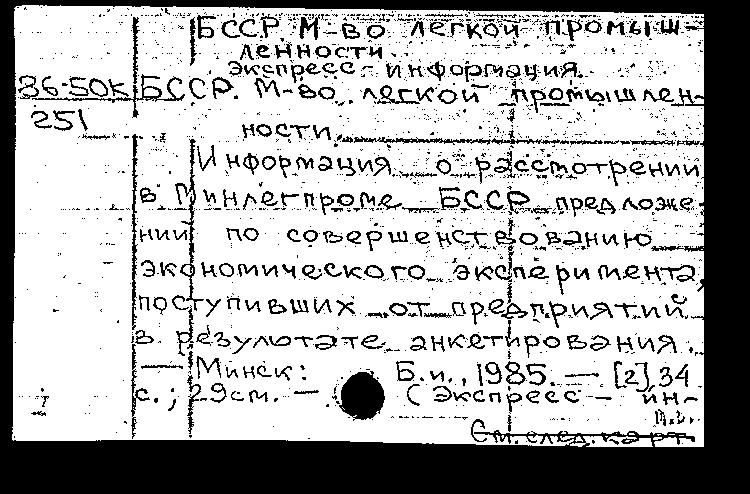 БССР М-во легкой промыш-
ленности.
Экспресс-информация.
86-50к БССР. М-во легкой промышлен-
251
ности.
Информация о рассмотрении
в Минлегпроме БССР предложе-
ний по совершенствованию
экономического эксперимента,
поступивших от предприятий
в результате анкетирования.
— Минск: Б.и., 1985. — [2], 34
с.; 29см. — (Экспресс-ин-
т.в.
См. след. карт.